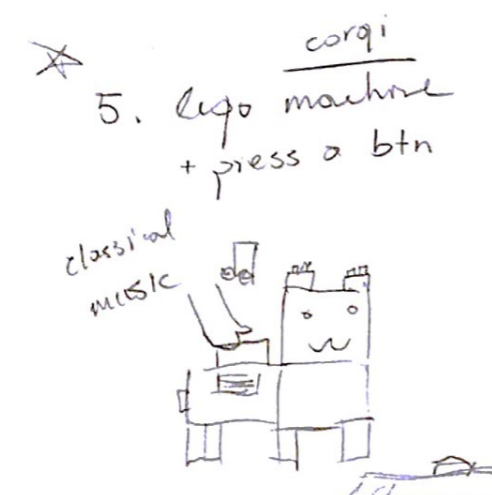 corgi
5. lego machine
+ press a btn
classical
music